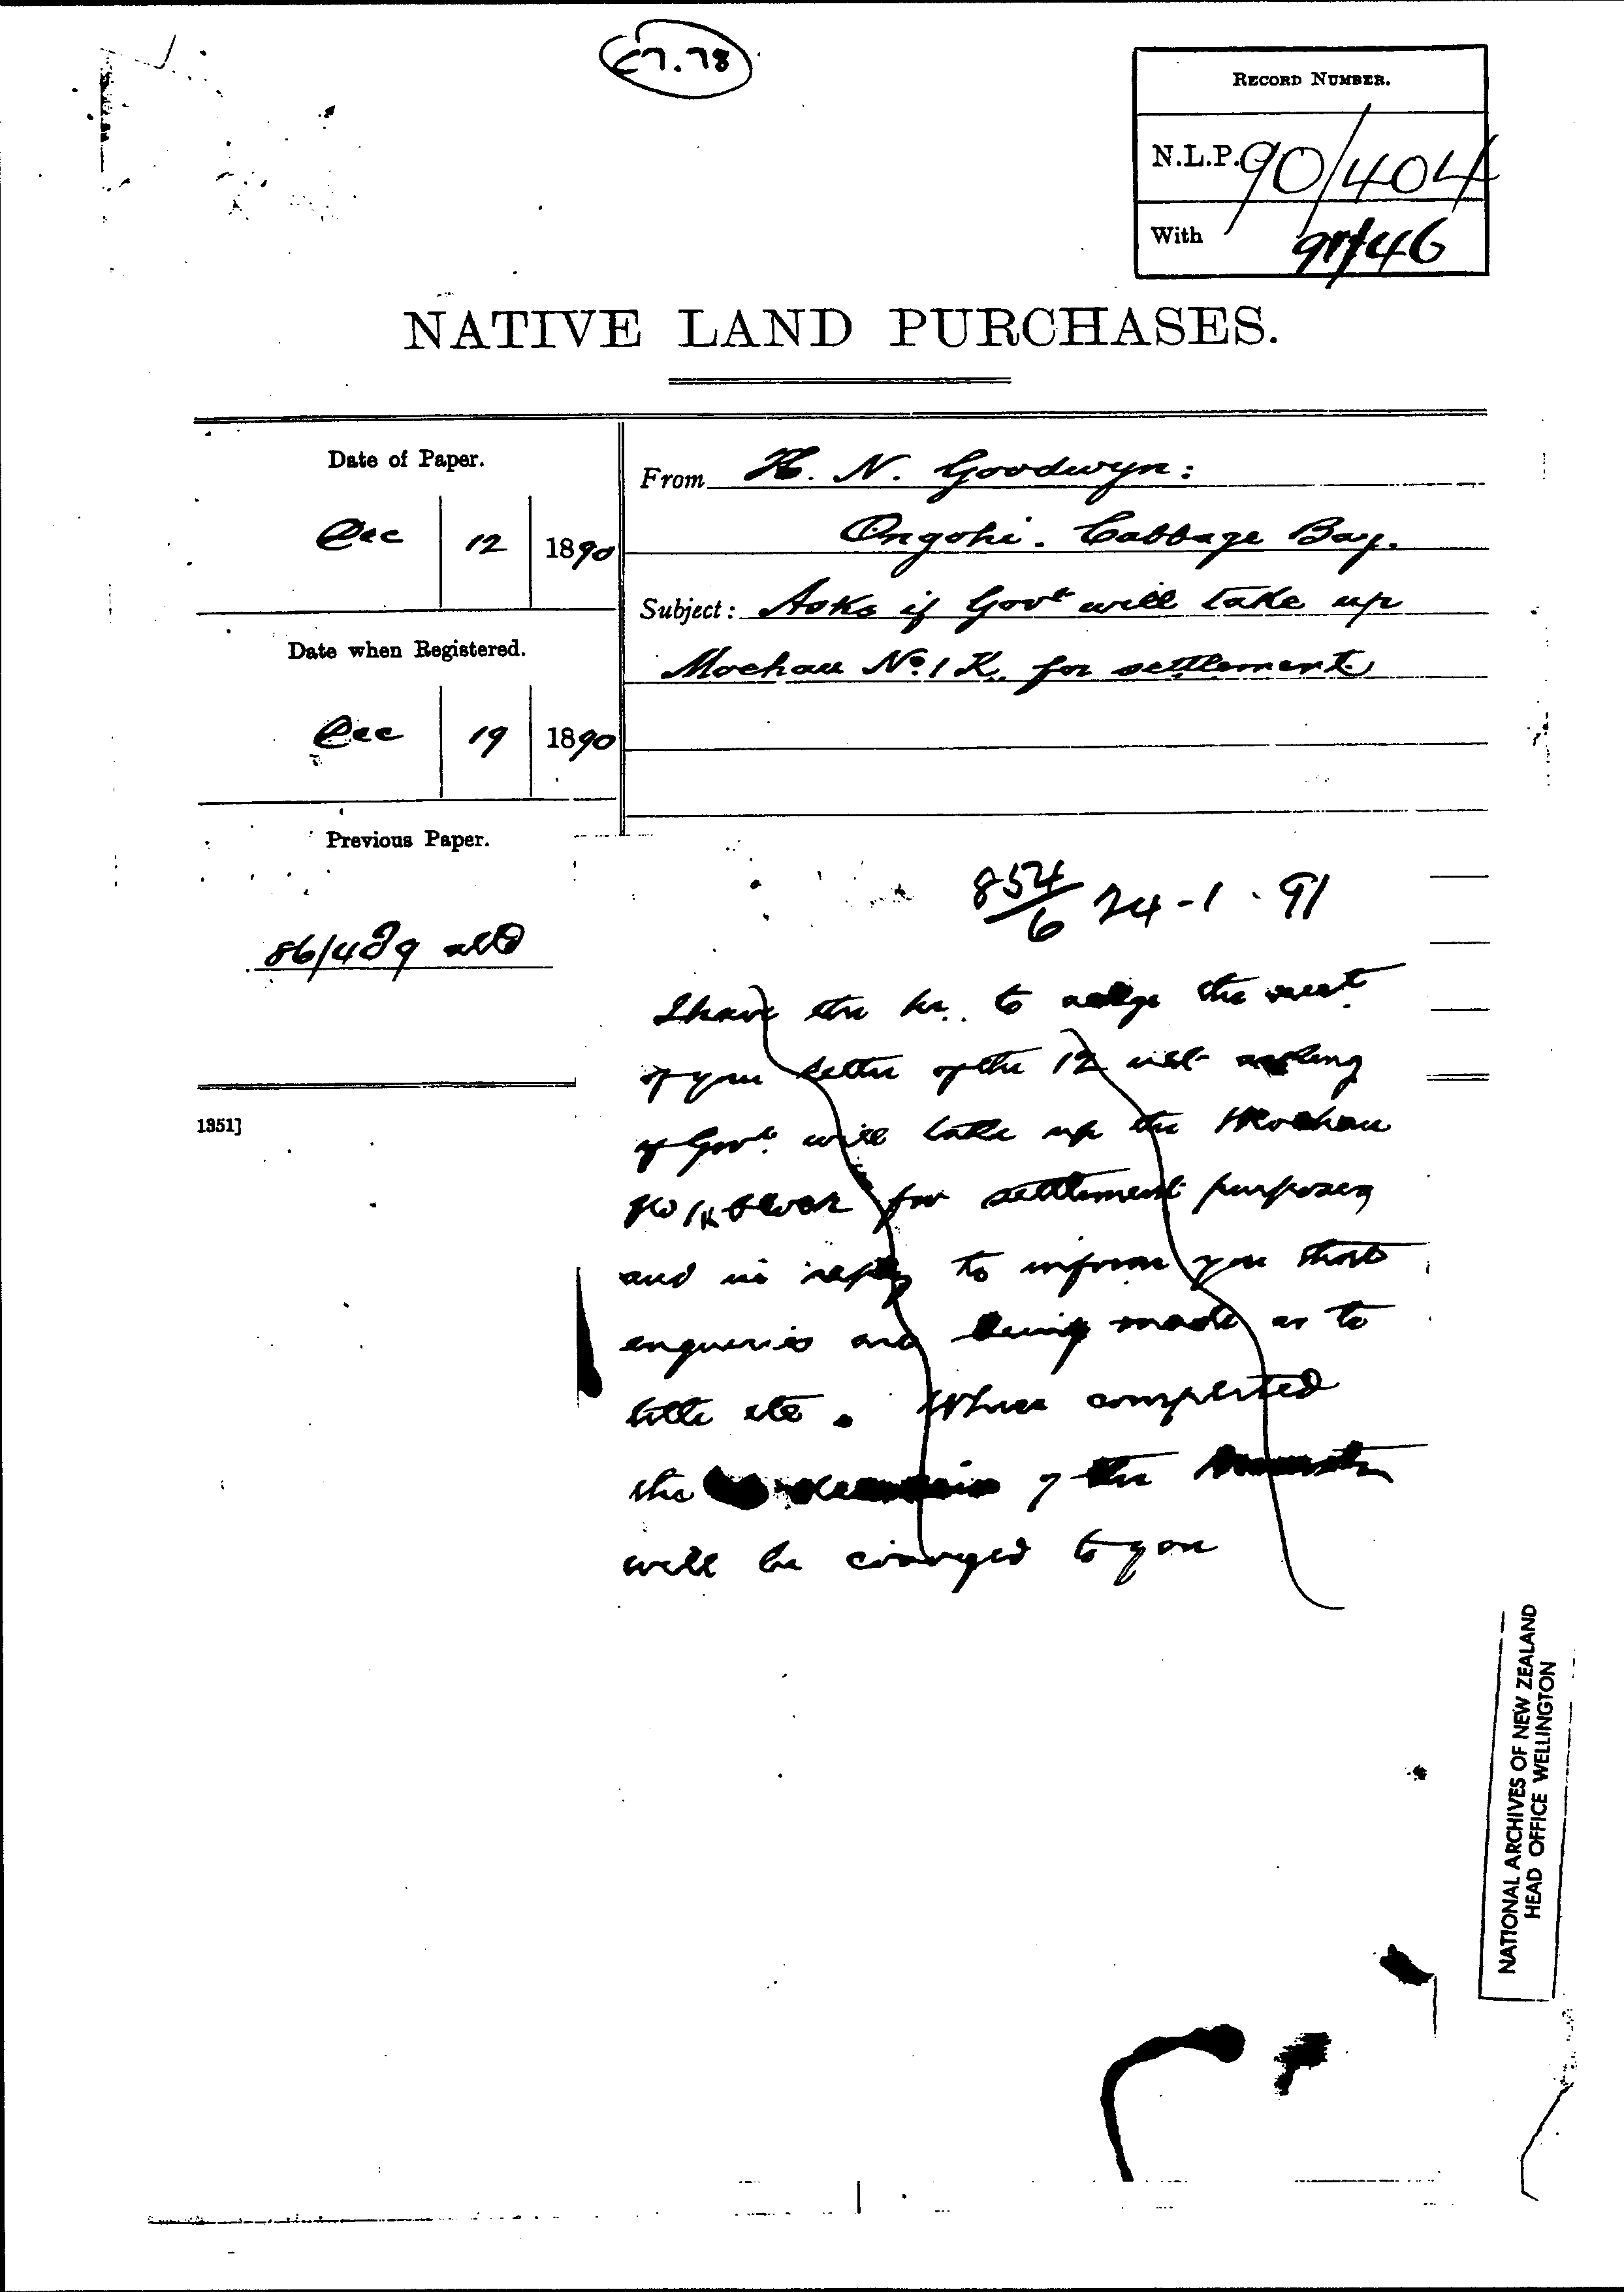 RECORD NUMBER.
N.L.P. 90/404
With 91/46
NATIVE LAND PURCHASES.
Date of Paper.
Dec 12 1890
Date when Registered.
Dec 19 1890
Previous Paper.
86/489
1351]
From H. N. Goodwyn:
Ongohi. Cabbage Bay.
Subject: Asks if Govt will take up
Moehau No. 1 K. for settlement
854/6 24-1-91
I have the hr. to the
of your letter of the 12 asking
if Govt. will take up the Moehau
No 1K block for settlement purposes
and in reply to inform you that
enquiries are being made as to
title etc. When completed
the of the
will be conveyed to you
NATIONAL ARCHIVES OF NEW ZEALAND
HEAD OFFICE WELLINGTON